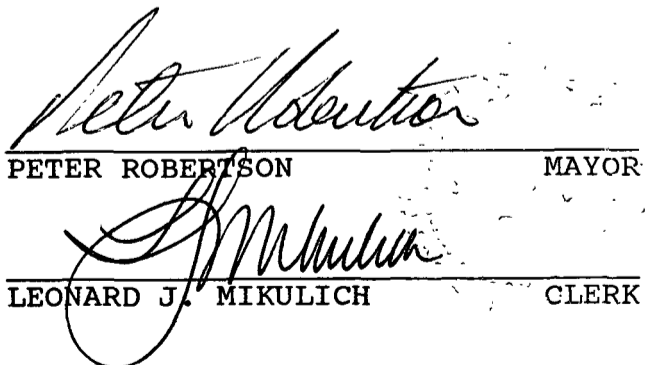 Peter Robertson
PETER ROBERTSON MAYOR
L J Mikulich
LEONARD J. MIKULICH CLERK